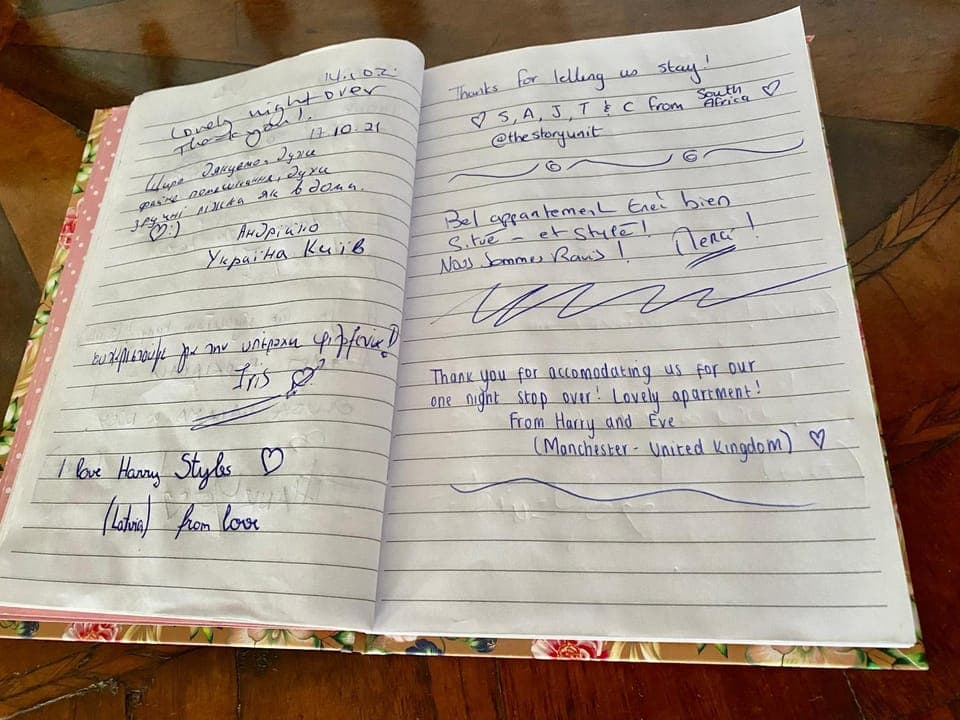 Lovely night over
Thank you!.
17.10.21
Щиро дякуємо. Дуже
файне помешкання, дуже
зручні ліжка як в дома.
♡:)
Україна Київ
ευχαριστούμε για την υπέροχη φιλοξενία!
Iris ♡
I love Harry Styles ♡
(Latvia) from love
Thanks for letting us stay!
♡ S, A, J, T & C from South Africa ♡
@thestoryunit
Bel appartement très bien
Situé - et stylé!
Nous Sommes Ravis! Merci!
Thank you for accomodating us for our
one night stop over! Lovely apartment!
From Harry and Eve
(Manchester - United Kingdom) ♡